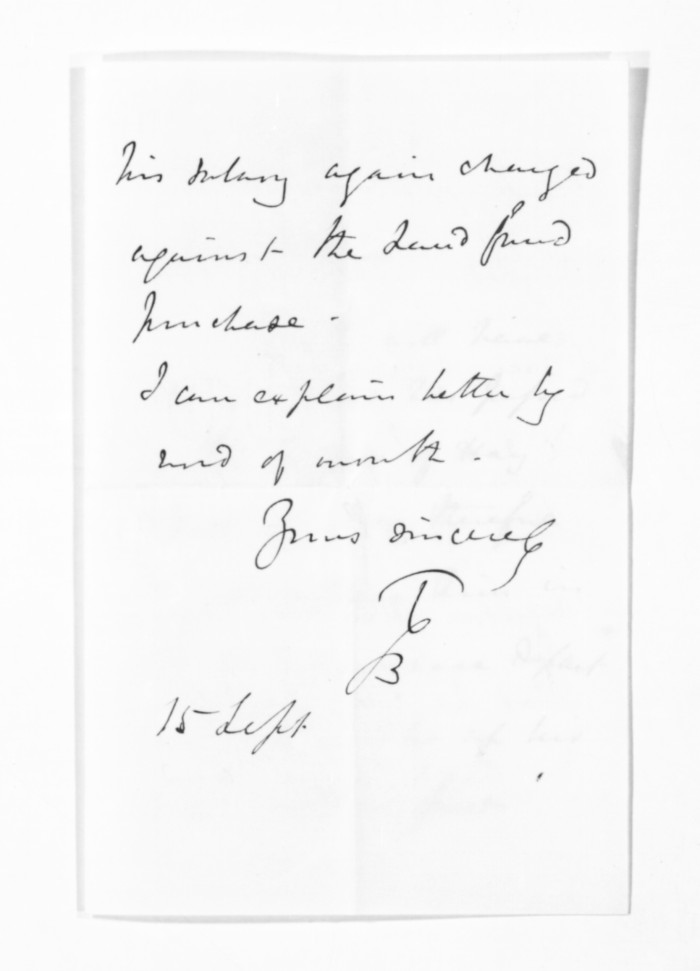 his salary again charged
against the Land fund
purchase -
I can explain better by
end of month -
Yours sincerely
TG
B
15 Sept